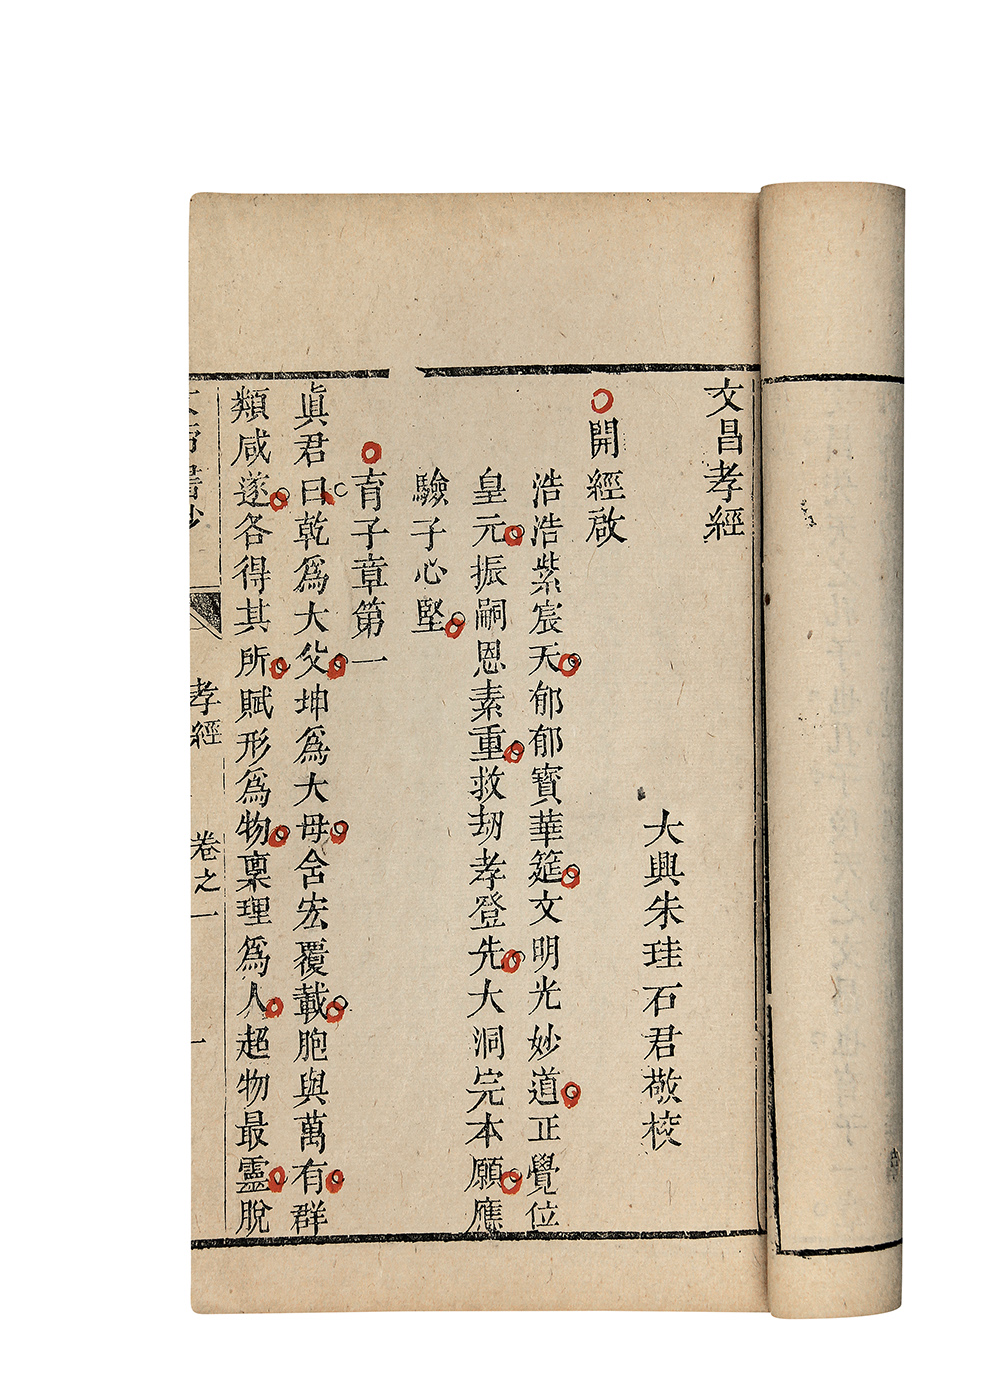 文昌孝經
大興朱珪石君敬校
開經啟
浩浩紫宸天郁郁寶華筵文明光妙道正覺位
皇元振嗣恩素重救劫孝登先大洞完本願應
驗子心堅
育子章第一
眞君曰乾爲大父坤爲大母含宏覆載胞與萬有群
類咸遂各得其所賦形爲物稟理爲人超物最靈脫
孝經 卷之一 一